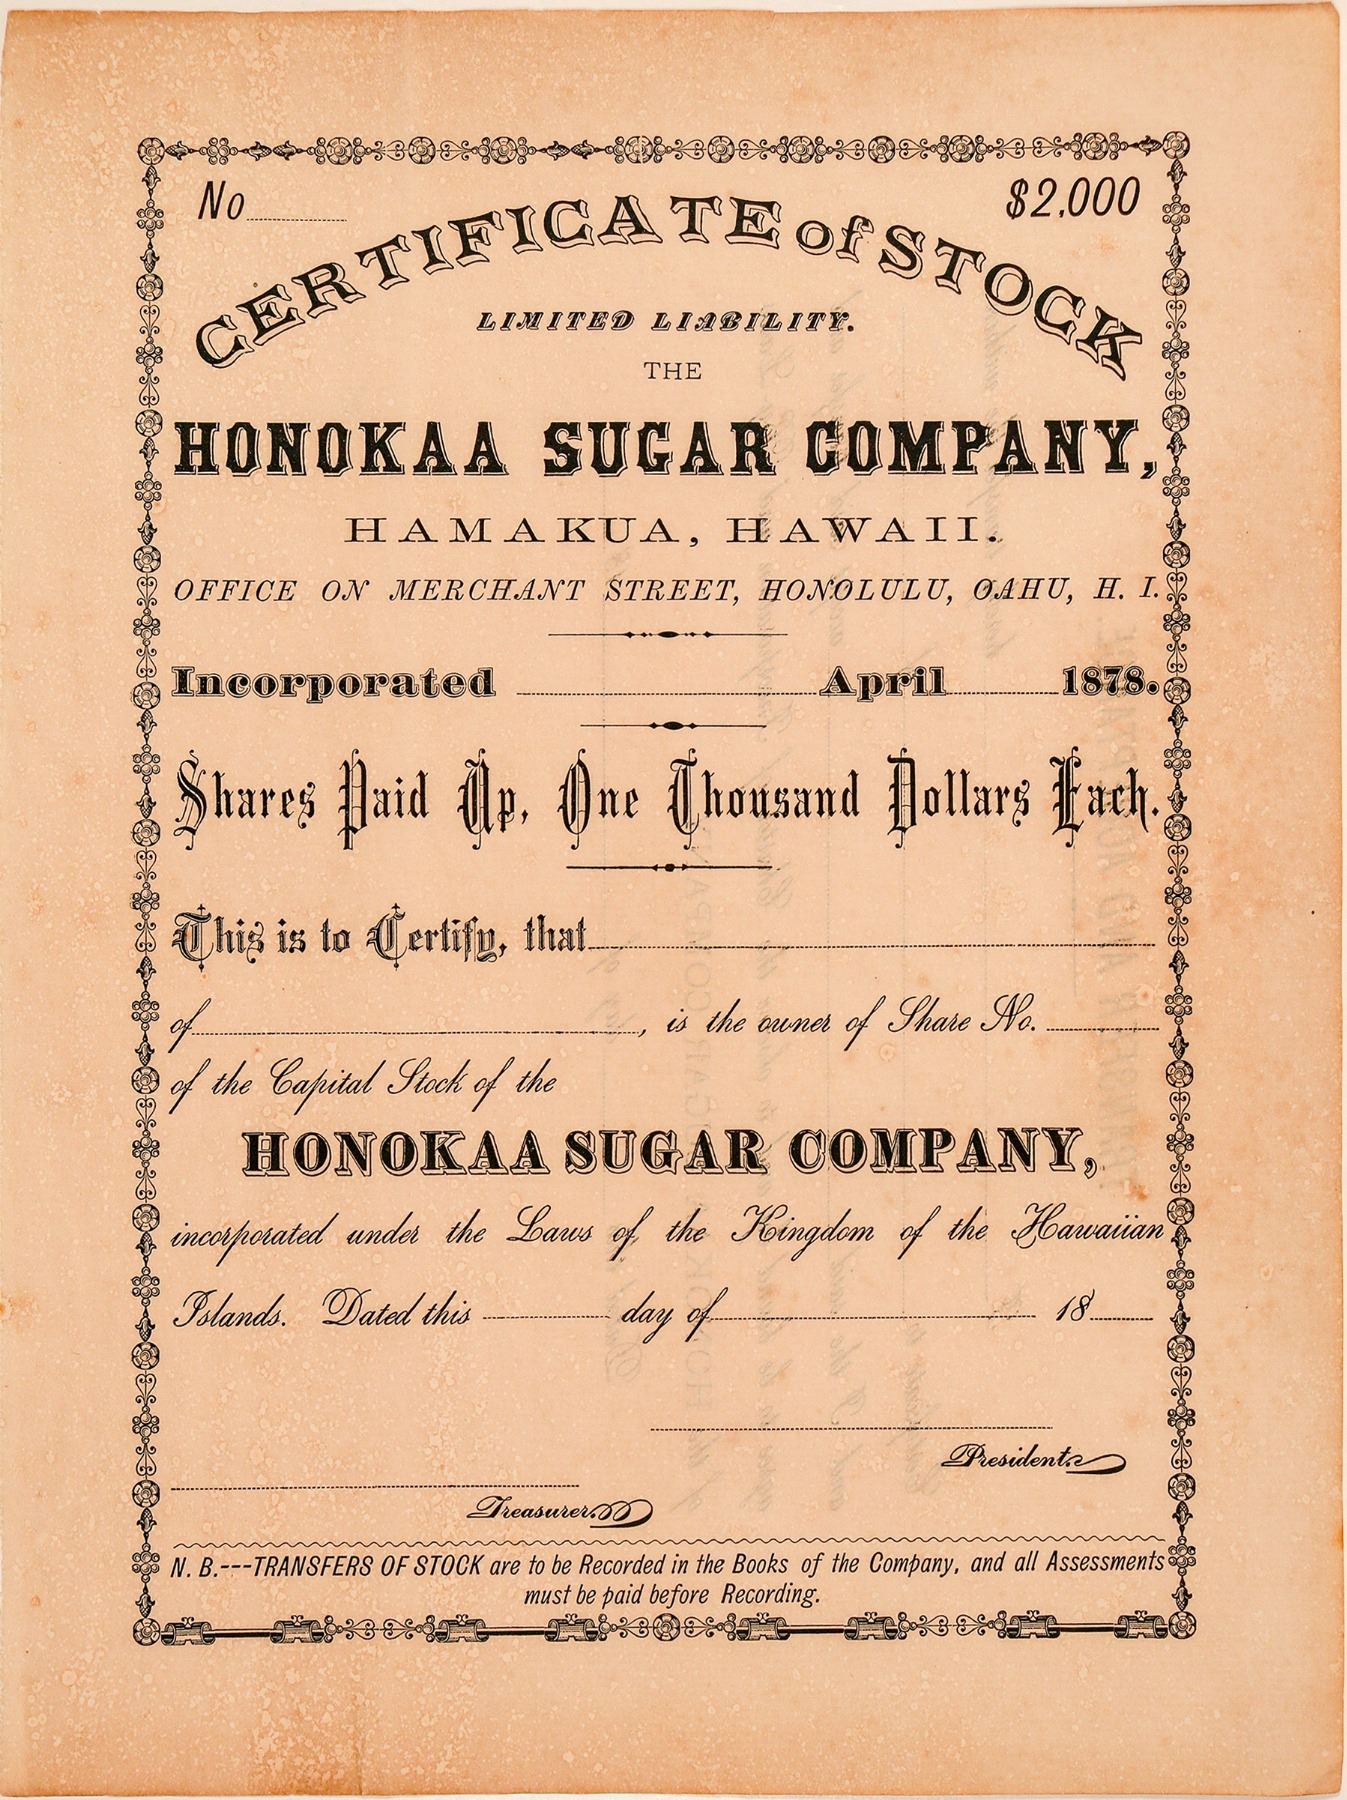 No $2,000
CERTIFICATE of STOCK
LIMITED LIABILITY.
THE
HONOKAA SUGAR COMPANY,
HAMAKUA, HAWAII.
OFFICE ON MERCHANT STREET, HONOLULU, OAHU, H. I.
Incorporated April 1878.
Shares Paid Up, One Thousand Dollars Each.
This is to Certify, that
of , is the owner of Share No.
of the Capital Stock of the
HONOKAA SUGAR COMPANY,
incorporated under the Laws of the Kingdom of the Hawaiian
Islands. Dated this day of 18
President.
Treasurer.
N. B.---TRANSFERS OF STOCK are to be Recorded in the Books of the Company, and all Assessments
must be paid before Recording.